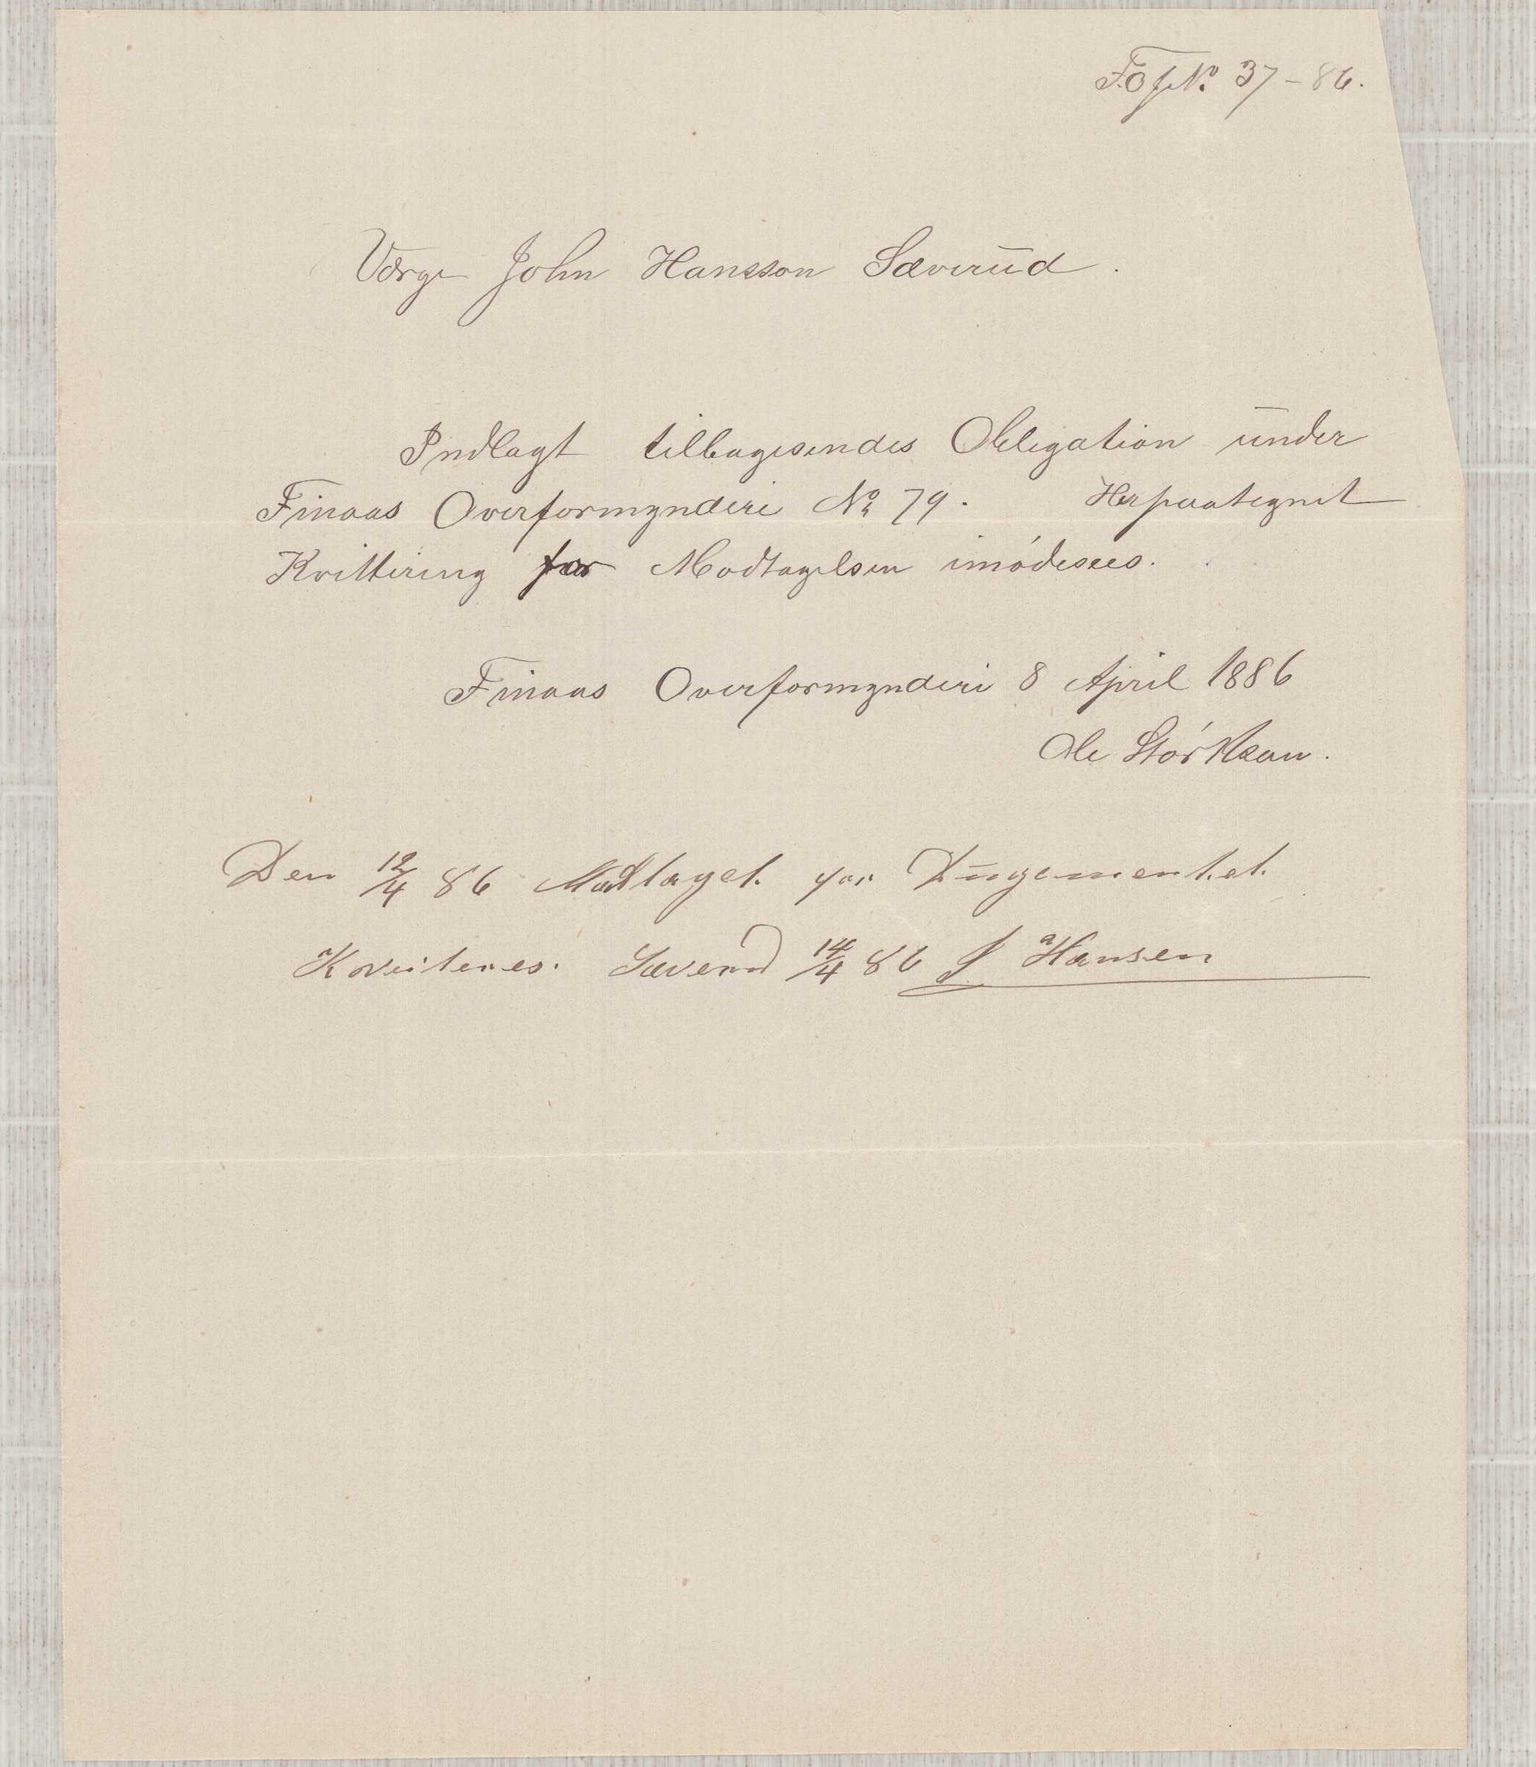 F.O.J.No 37-86.
Værge John Hansson Sæverud.
Indlagt tilbagesendes Obligation under
Finaas Overformynderi No 79. Herpaategnet
Kvittering for Modtagelsen imødesees.
Finaas Overformynderi 8 April 1886
Ole Størkson.
Den 12/4 86 Modtaget for
Kviteres. Sæverud 14/4 86 J Hansen